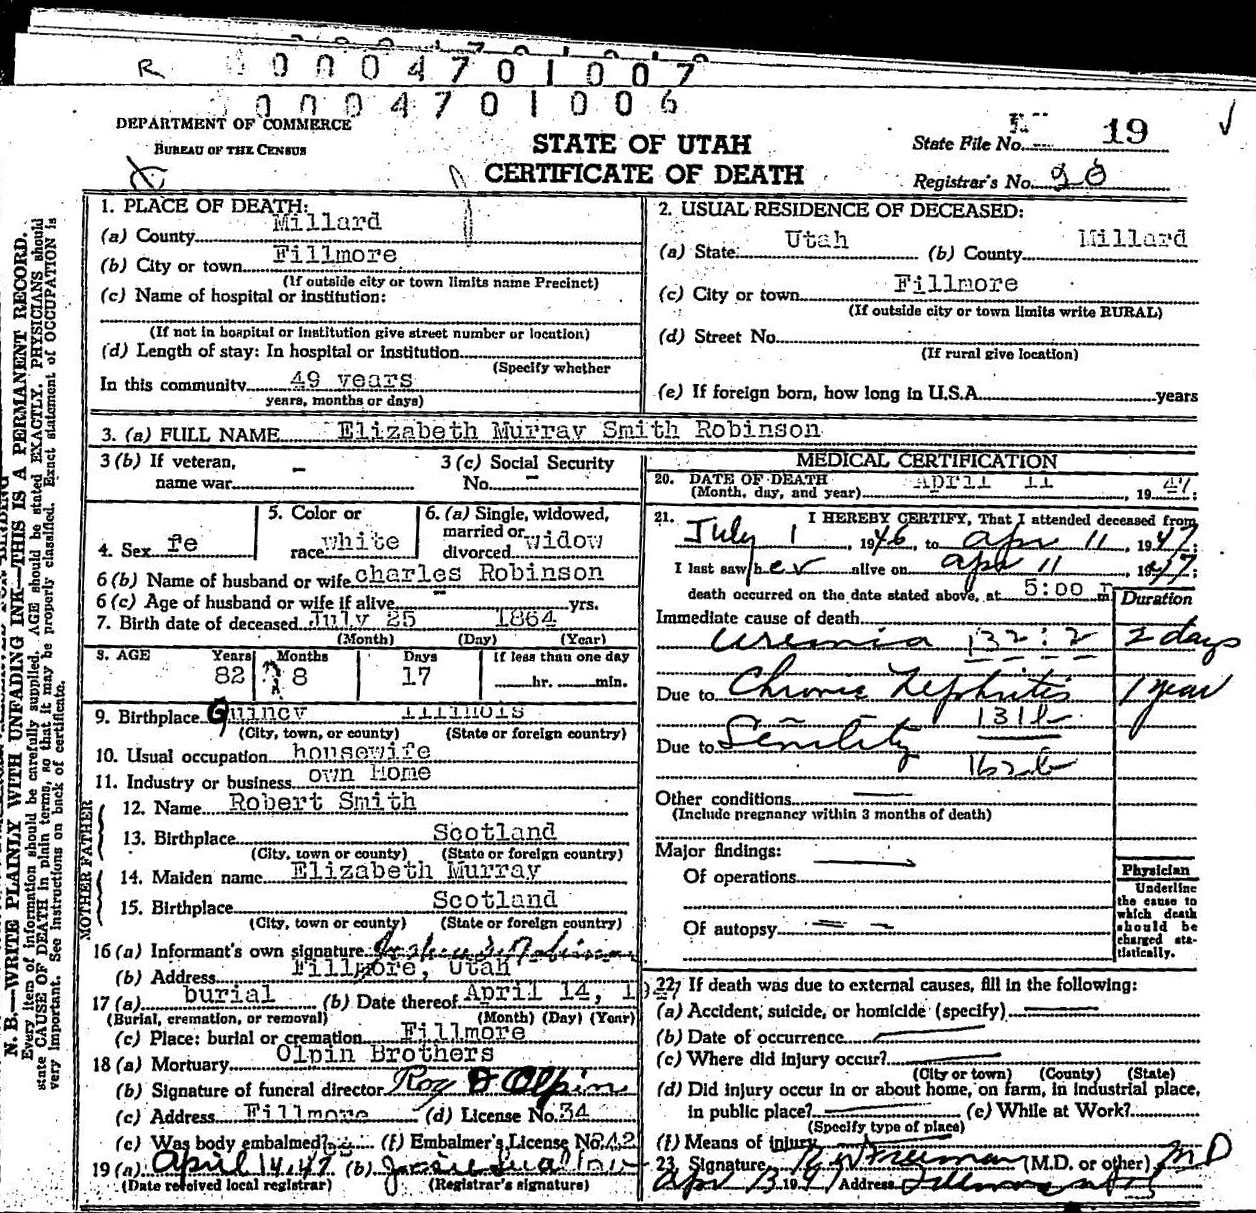 R 0 0 0 4 7 0 1 0 0 7
0 0 0 4 7 0 1 0 0 6
DEPARTMENT OF COMMERCE
BUREAU OF THE CENSUS
STATE OF UTAH
CERTIFICATE OF DEATH
State File No. 19
Registrar's No. 28
N. B.—WRITE PLAINLY WITH UNFADING INK—THIS IS A PERMANENT RECORD.
Every item of information should be carefully supplied. AGE should be stated EXACTLY. PHYSICIANS should
state CAUSE OF DEATH in plain terms, so that it may be properly classified. Exact statement of OCCUPATION is
very important. See instructions on back of certificate.
1. PLACE OF DEATH:
(a) County Millard
(b) City or town Fillmore
(If outside city or town limits name Precinct)
(c) Name of hospital or institution:
(If not in hospital or institution give street number or location)
(d) Length of stay: In hospital or institution
(Specify whether
In this community 49 years
years, months or days)
2. USUAL RESIDENCE OF DECEASED:
(a) State Utah (b) County Millard
(c) City or town Fillmore
(If outside city or town limits write RURAL)
(d) Street No.
(If rural give location)
(e) If foreign born, how long in U.S.A. years
3. (a) FULL NAME Elizabeth Murray Smith Robinson
3 (b) If veteran,
name war -
3 (c) Social Security
No. -
4. Sex fe
5. Color or
race white
6. (a) Single, widowed,
married or
divorced widow
6 (b) Name of husband or wife charles Robinson
6 (c) Age of husband or wife if alive yrs.
7. Birth date of deceased July 25 1864
(Month) (Day) (Year)
8. AGE Years Months Days If less than one day
82 8 17 hr. min.
9. Birthplace Quincy Illinois
(City, town, or county) (State or foreign country)
10. Usual occupation housewife
11. Industry or business own Home
FATHER
12. Name Robert Smith
13. Birthplace Scotland
(City, town or county) (State or foreign country)
MOTHER
14. Maiden name Elizabeth Murray
15. Birthplace Scotland
(City, town or county) (State or foreign country)
16 (a) Informant's own signature Robinson
(b) Address Fillmore, Utah
17 (a) burial (b) Date thereof April 14, 1947
(Burial, cremation, or removal) (Month) (Day) (Year)
(c) Place: burial or cremation Fillmore
18 (a) Mortuary Olpin Brothers
(b) Signature of funeral director Roy D Olpin
(c) Address Fillmore (d) License No. 34
(e) Was body embalmed? (f) Embalmer's License No. 242
19 (a) April 14, 47 (b)
(Date received local registrar) (Registrar's signature)
MEDICAL CERTIFICATION
20. DATE OF DEATH
(Month, day, and year) April 11, 1947;
21. I HEREBY CERTIFY, That I attended deceased from
July 1, 1946, to Apr 11, 1947;
I last saw her alive on Apr 11, 1947;
death occurred on the date stated above, at 5:00 m
Duration
Immediate cause of death
Uremia 132:2 2 days
Due to Chronic Nephritis 1 year
131b
Due to Senility
162b
Other conditions
(Include pregnancy within 3 months of death)
Major findings:
Of operations
Of autopsy
Physician
Underline
the cause to
which death
should be
charged sta-
tistically.
22. If death was due to external causes, fill in the following:
(a) Accident, suicide, or homicide (specify)
(b) Date of occurrence
(c) Where did injury occur?
(City or town) (County) (State)
(d) Did injury occur in or about home, on farm, in industrial place,
in public place? (e) While at Work?
(Specify type of place)
(f) Means of injury
23. Signature (M.D. or other) MD
Apr 13 1947 Address Fillmore